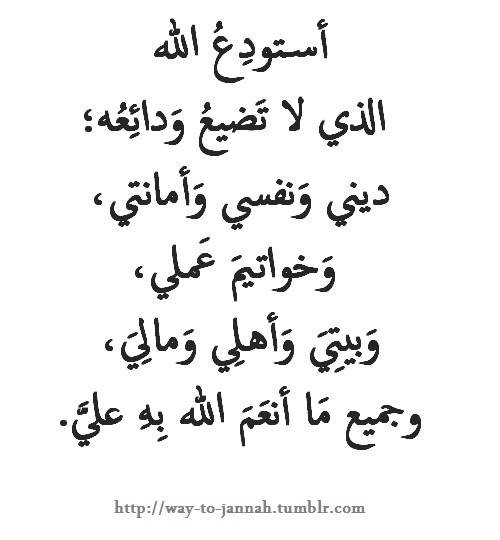 أستودِعُ الله
الذي لا تَضيعُ وَدائِعُه؛
ديني وَنفسي وَأمانتي،
وَخواتيمَ عَملي،
وَبيتِيَ وَأهلِي وَمالِيَ،
وجميع مَا أنعَمَ الله بِهِ عليَّ.
http://way-to-jannah.tumblr.com